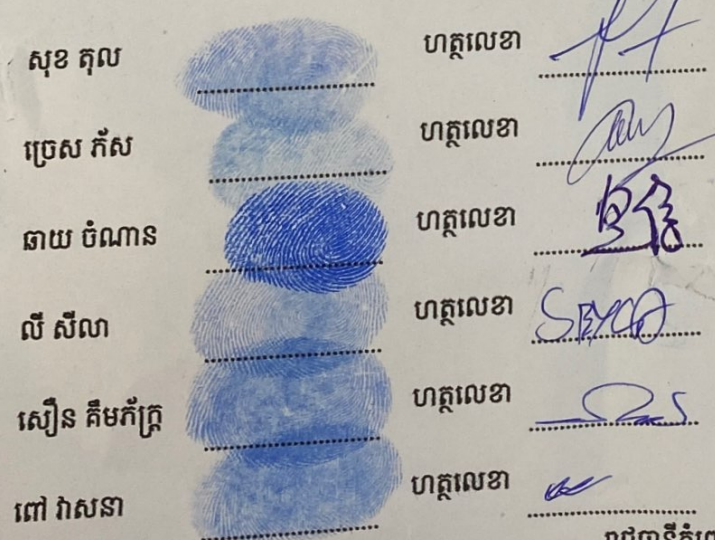 សុខ តុល ហត្ថលេខា
ច្រេស ភ័ស ហត្ថលេខា
ឆាយ ចំណាន ហត្ថលេខា
លី សីលា ហត្ថលេខា
សឿន គឹមភ័ក្ត្រ ហត្ថលេខា
ពៅ វាសនា ហត្ថលេខា